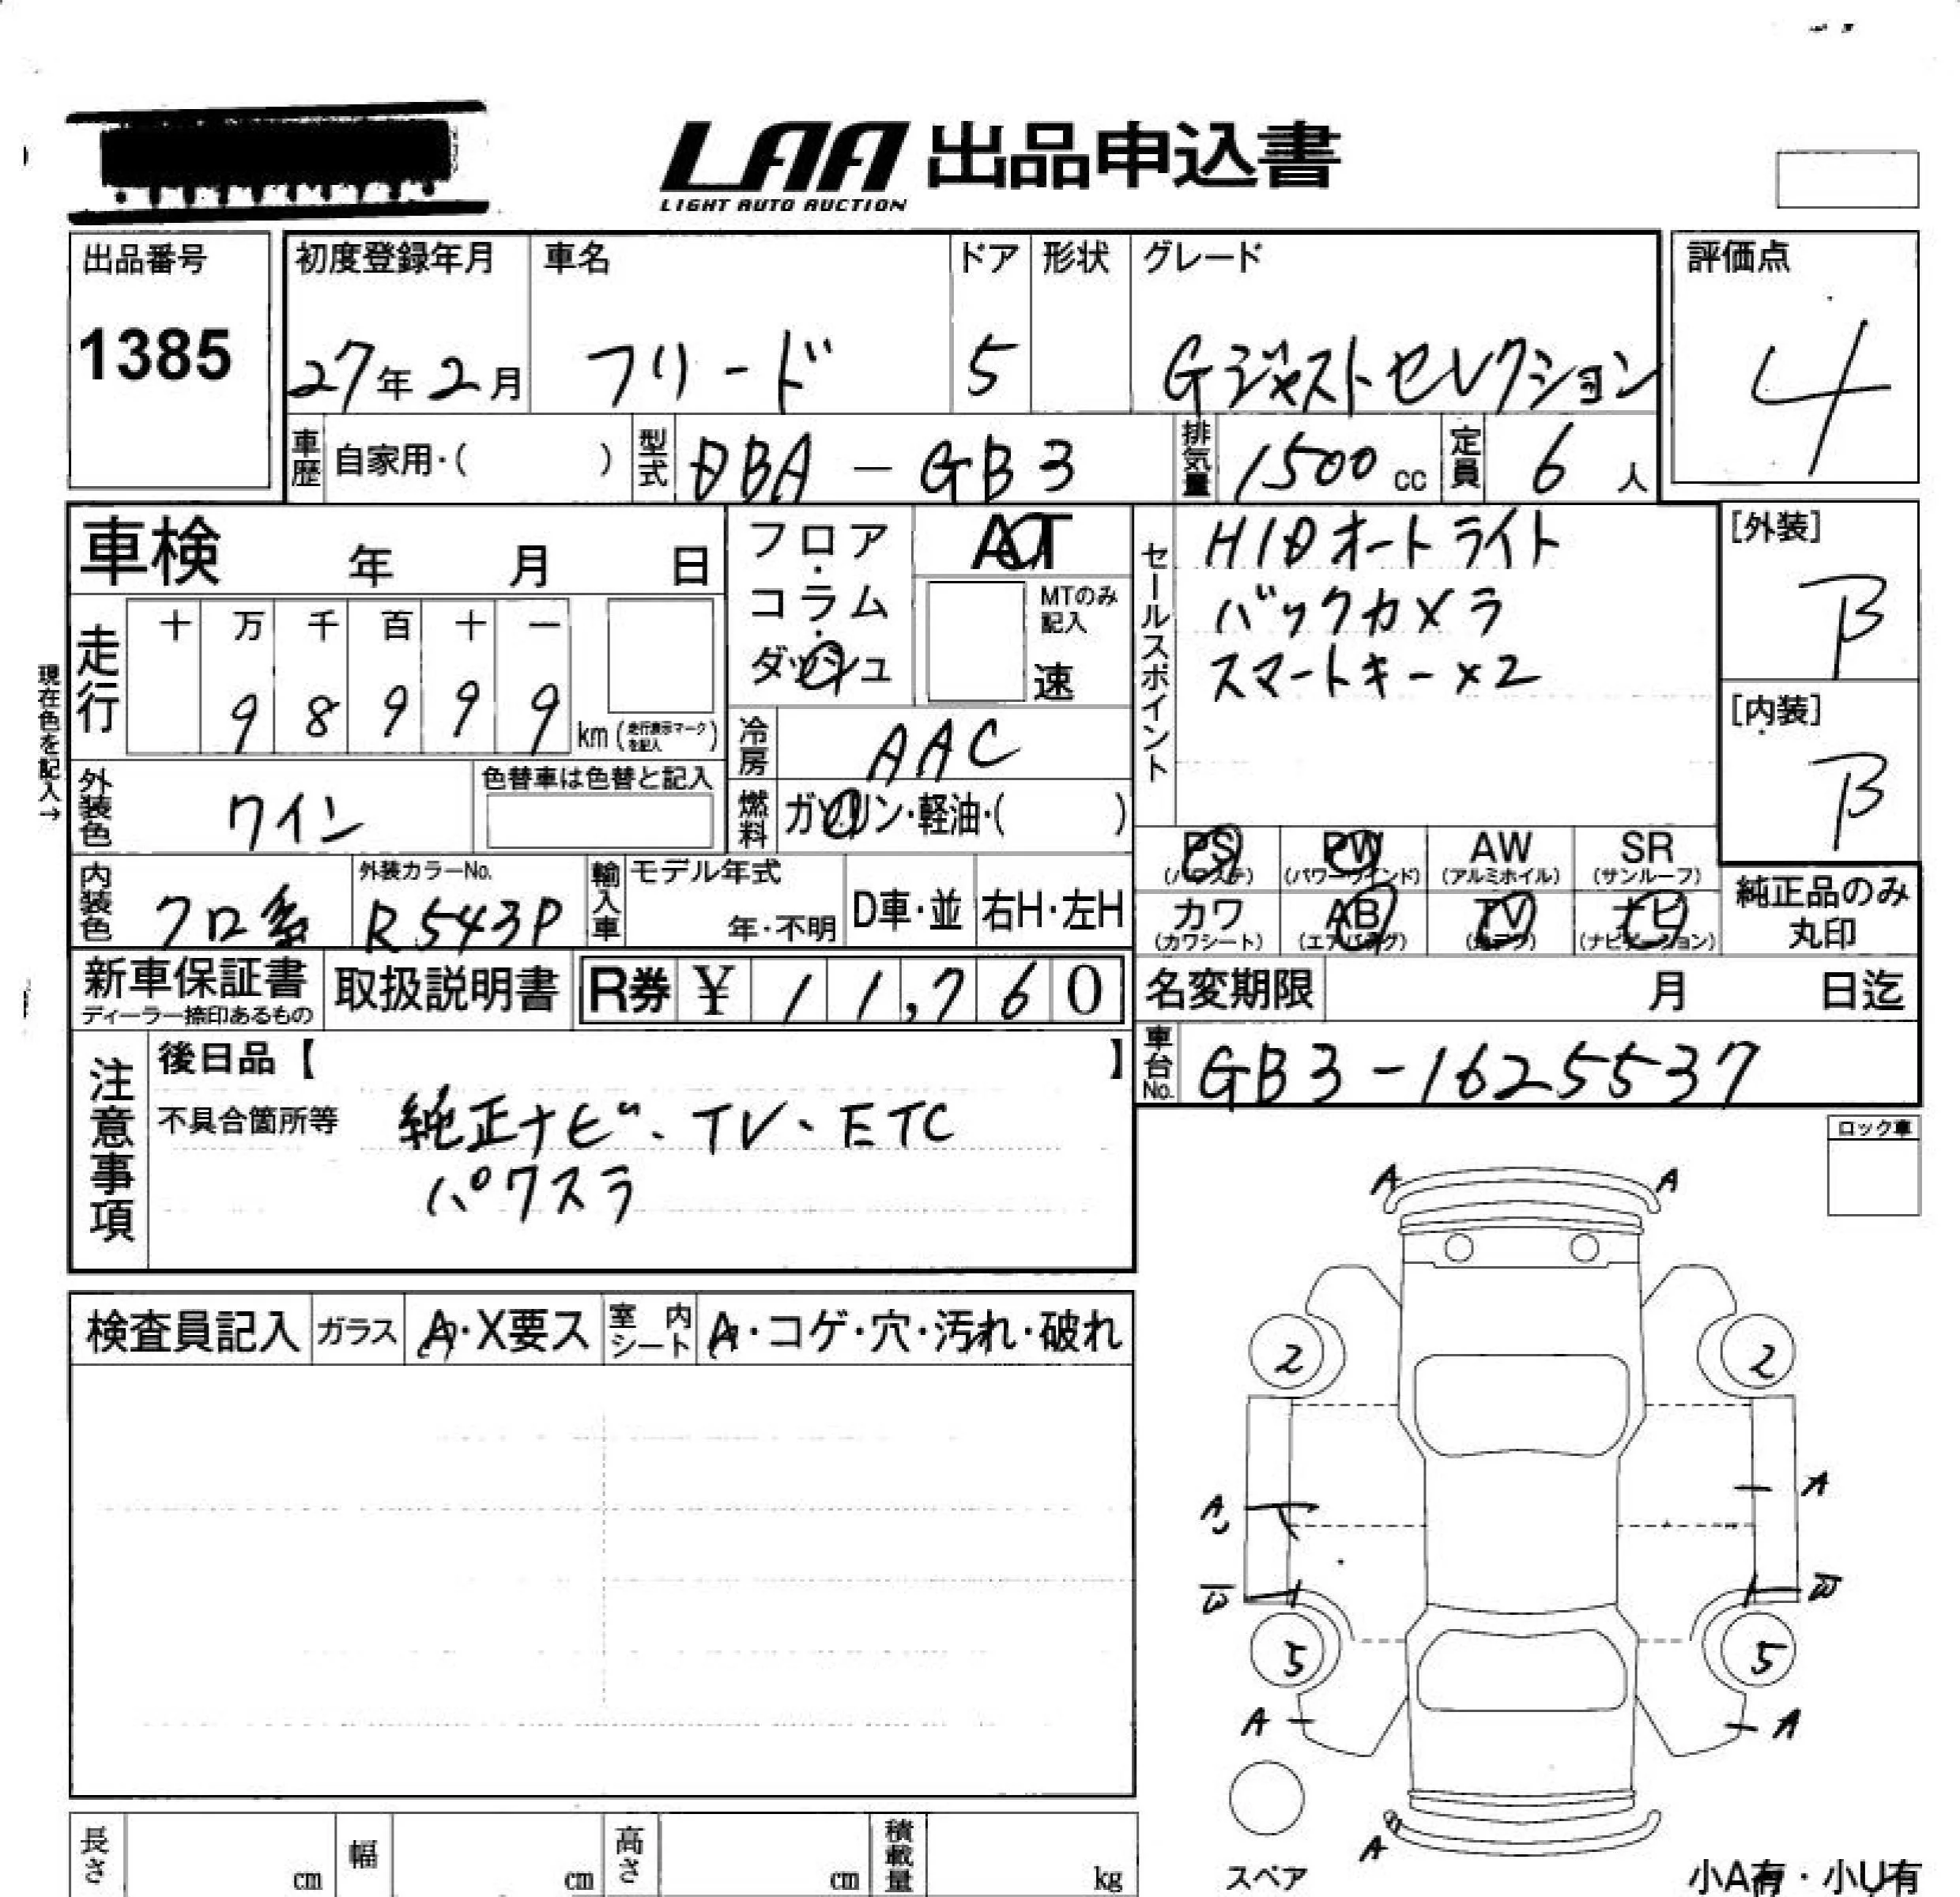 LAA 出品申込書
LIGHT AUTO AUCTION
出品番号
1385
初度登録年月
27年2月
車名
フリード
ドア
5
形状
グレード
Gジャストセレクション
評価点
4
車歴 自家用・( )
型式 DBA-GB3
排気量 1500 cc
定員 6 人
車検 年 月 日
走行
十 万 千 百 十 一
9 8 9 9 9 km (走行表示マークを記入)
現在色を記入→
外装色 ワイン
色替車は色替と記入
内装色 クロ系
外装カラーNo.
R543P
フロア・コラム・ダッシュ
AT
MTのみ記入
速
冷房 AAC
燃料 ガソリン・軽油・( )
輸入車 モデル年式
年・不明
D車・並
右H・左H
セールスポイント
HIDオートライト
バックカメラ
スマートキー×2
[外装]
B
[内装]
B
PS (パワステ)
PW (パワーウインド)
AW (アルミホイル)
SR (サンルーフ)
カワ (カワシート)
AB (エアバッグ)
TV
ナビ (ナビゲーション)
純正品のみ
丸印
新車保証書
ディーラー捺印あるもの
取扱説明書
R券 ¥ 11,760
名変期限 月 日迄
車台No. GB3-1625537
注意事項
後日品【 】
不具合箇所等
純正ナビ、TV、ETC
パワスラ
ロック車
検査員記入
ガラス A・X要ス
室内シート A・コゲ・穴・汚れ・破れ
A A
2 2
A
A
W W
5 5
A A
A
スペア
小A有・小U有
長さ cm
幅 cm
高さ cm
積載量 kg